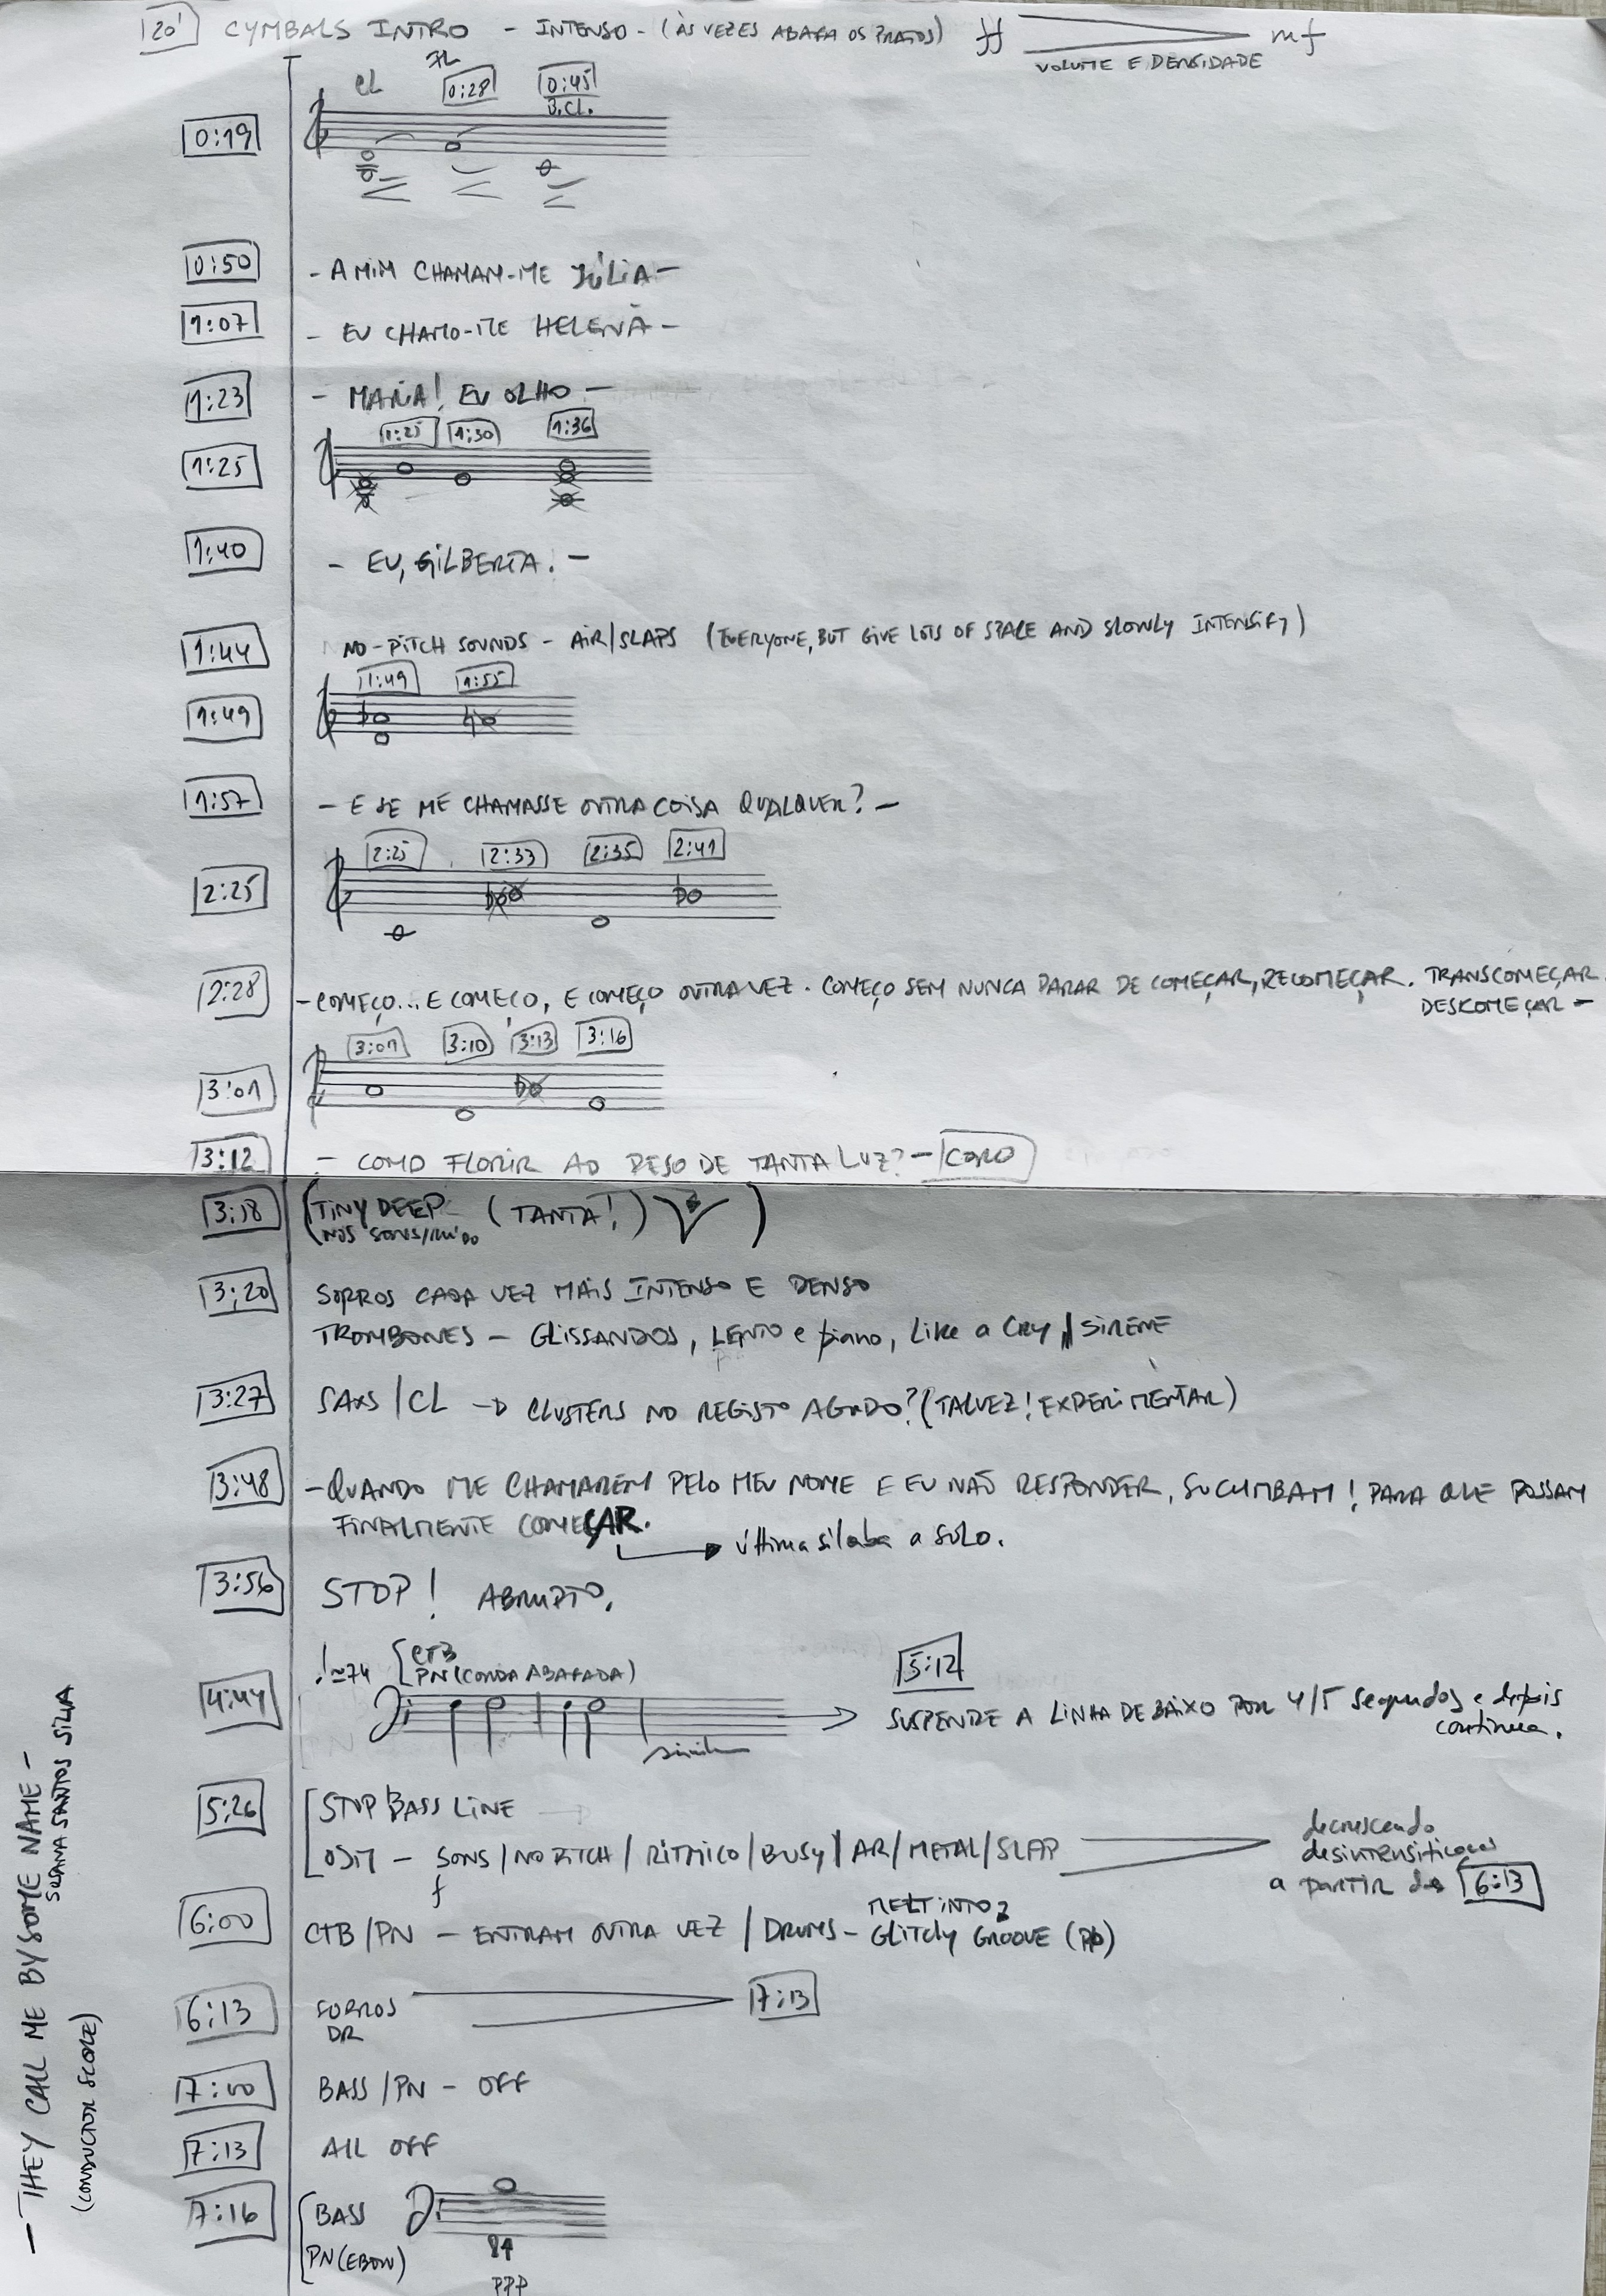 20' CYMBALS INTRO - INTENSO - (ÀS VEZES ABAFA OS PRATOS) ff mf
VOLUME E DENSIDADE
CL FL 0:28 0:45
B.CL.
0:19
0:50 - A MIM CHAMAM-ME JÚLIA -
1:07 - EU CHAMO-ME HELENA -
1:23 - MARIA! EU OLHO -
1:25 1:30 1:36
1:25
1:40 - EU, GILBERTA. -
1:44 NO-PITCH SOUNDS - AIR/SLAPS (EVERYONE, BUT GIVE LOTS OF SPACE AND SLOWLY INTENSIFY)
1:49 1:55
1:49
1:57 - E SE ME CHAMASSE OUTRA COISA QUALQUER? -
2:25 2:33 2:35 2:41
2:25
2:28 - COMEÇO... E COMEÇO, E COMEÇO OUTRA VEZ. COMEÇO SEM NUNCA PARAR DE COMEÇAR, RECOMEÇAR. TRANSCOMEÇAR
DESCOMEÇAR -
3:01 3:10 3:13 3:16
3:01
3:12 - COMO FLORIR AO PESO DE TANTA LUZ? - CORO
3:18 (TINY DEEP (TANTA!) )
NOS SONS/RUÍDO
3:20 SOPROS CADA VEZ MAIS INTENSO E DENSO
TROMBONES - GLISSANDOS, LENTO e piano, LIKE A CRY / SIRENE
3:27 SAXS / CL → CLUSTERS NO REGISTO AGUDO? (TALVEZ! EXPERIMENTAR)
3:48 - QUANDO ME CHAMAREM PELO MEU NOME E EU NÃO RESPONDER, SUCUMBAM! PARA QUE POSSAM
FINALMENTE COMEÇAR.
última sílaba a SOLO.
3:56 STOP! ABRUPTO.
♩≃74 CTB
PN (CORDA ABAFADA)
5:12
4:44 simile → SUSPENDE A LINHA DE BAIXO POR 4/5 segundos e depois
continua.
5:26 STOP BASS LINE
OJM - SONS / NO PITCH / RÍTMICO / BUSY / AR / METAL / SLAP
f
decrescendo
a PARTIR de 6:13
MELT INTO
6:00 CTB / PN - ENTRAM OUTRA VEZ / DRUMS - GLITCHY GROOVE (pp)
6:13 SOPROS 7:13
DR
7:00 BASS / PN - OFF
7:13 ALL OFF
7:16 BASS
PN (EBOW)
PPP
- THEY CALL ME BY SOME NAME -
SUSANA SANTOS SILVA
(CONDUCTOR SCORE)